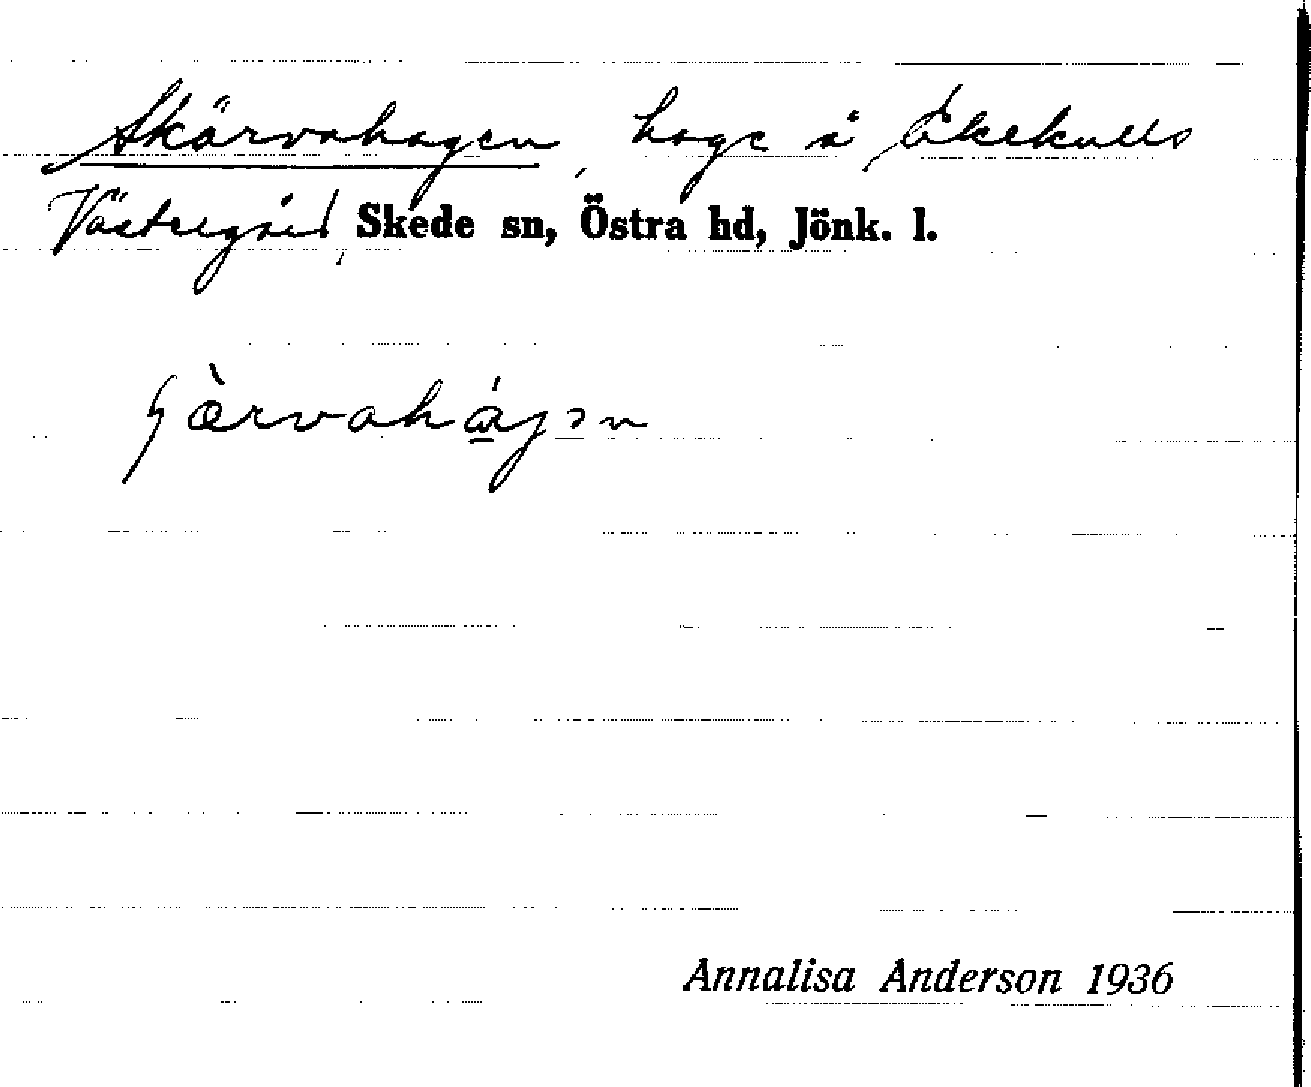 Skärvahagen, hage å Åkekulls
Västregård, Skede sn, Östra hd, Jönk. l.
Annalisa Anderson 1936